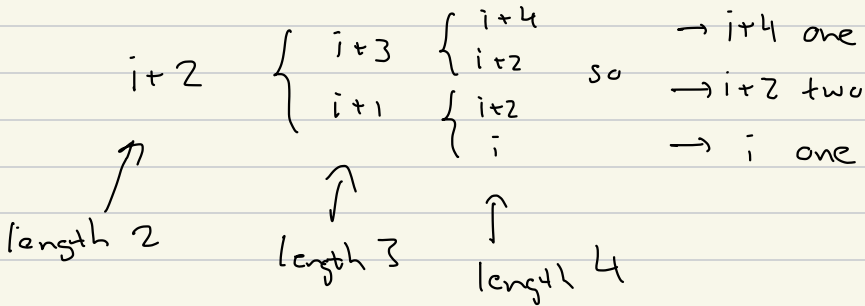 i+2 { i+3 { i+4
i+2
i+1 { i+2
i
so
→ i+4 one
→ i+2 two
→ i one
length 2
length 3
length 4